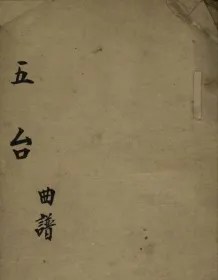 五台
曲譜